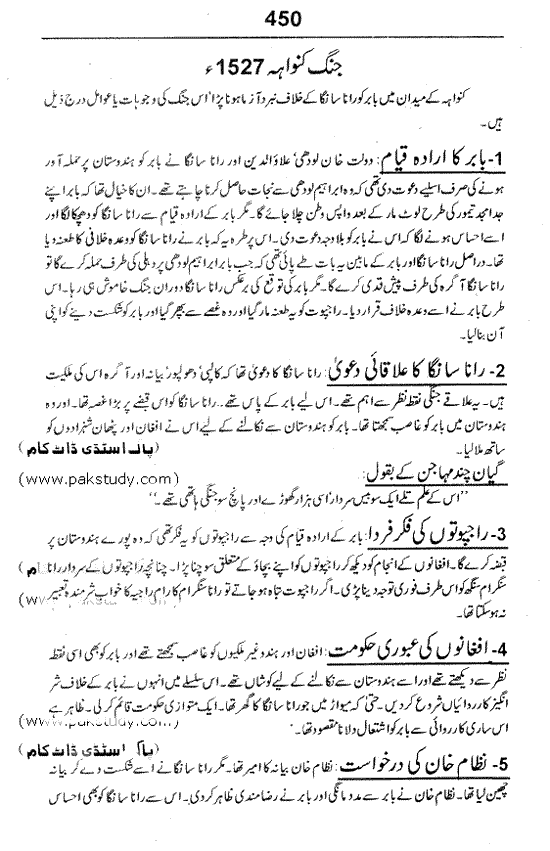 450
جنگ کنواہہ 1527ء
کنواہہ کے میدان میں بابر کو رانا سانگا کے خلاف نبرد آزما ہونا پڑا' اس جنگ کی وجوہات یا عوامل درج ذیل
ہیں۔
1- بابر کا ارادہ قیام: دولت خان لودھی' علاؤالدین اور رانا سانگا نے بابر کو ہندوستان پر حملہ آور
ہونے کی صرف اسلیے دعوت دی تھی کہ وہ ابراہیم لودھی سے نجات حاصل کرنا چاہتے تھے۔ ان کا خیال تھا کہ بابر اپنے
جدامجد تیمور کی طرح لوٹ مار کے بعد واپس وطن چلا جائے گا۔ مگر بابر کے ارادہ قیام سے رانا سانگا کو دھچکا لگا اور
اسے احساس ہونے لگا کہ اس نے بابر کو بلاوجہ دعوت دی۔ اس پر طرہ یہ کہ بابر نے رانا سانگا کو وعدہ خلافی کا طعنہ دیا
تھا۔ دراصل رانا سانگا اور بابر کے مابین یہ بات طے پائی تھی کہ جب بابر ابراہیم لودھی پر دہلی کی طرف حملہ کرے گا تو
رانا سانگا آگرہ کی طرف پیش قدمی کرے گا۔ مگر بابر کی توقع کی برعکس رانا سانگا دوران جنگ خاموش ہی رہا۔ اس
طرح بابر نے اسے وعدہ خلاف قرار دیا۔ راجپوت کو یہ طعنہ مار گیا اور وہ غصے سے بپھر گیا اور بابر کو شکست دینے کو اپنی
آن بنا لیا۔
2- رانا سانگا کا علاقائی دعویٰ: رانا سانگا کا دعویٰ تھا کہ کالپی' دھولپور' بیانہ اور آگرہ اس کی ملکیت
ہیں۔ یہ علاقے جنگی نقطہ نظر سے اہم تھے۔ اس لیے بابر کے پاس تھے۔۔ رانا سانگا کو اس قبضے پر بڑا غصہ تھا۔ اور وہ
ہندوستان میں بابر کو غاصب سمجھتا تھا۔ بابر کو ہندوستان سے نکالنے کے لیے اس نے افغان اور پٹھان شہزادوں کو
ساتھ ملا لیا۔ (پاک اسٹڈی ڈاٹ کام)
گیان چند مہاجن کے بقول: (www.pakstudy.com)
"اس کے علم تلے ایک سو بیس سردار' اسی ہزار گھوڑے اور پانچ سو جنگی ہاتھی تھے۔"
3- راجپوتوں کی فکر فردا: بابر کے ارادہ قیام کی وجہ سے راجپوتوں کو یہ فکر تھی کہ وہ پورے ہندوستان پر
قبضہ کرے گا۔ افغانوں کے انجام کو دیکھ کر راجپوتوں کو اپنے بچاؤ کے متعلق سوچنا پڑا۔ چنانچہ راجپوتوں کے سردار رانا
سنگرام سنگھ کو اس طرف فوری توجہ دینا پڑی۔ اگر راجپوت تباہ ہو جاتے تو رانا سنگرام کا رام راجیہ کا خواب شرمندہ تعبیر
نہ ہو سکتا تھا۔
4- افغانوں کی عبوری حکومت: افغان اور ہندو غیر ملکیوں کو غاصب سمجھتے تھے اور بابر کو بھی اسی نقطہ
نظر سے دیکھتے تھے اور اسے ہندوستان سے نکالنے کے لیے کوشاں تھے۔ اس سلسلے میں انہوں نے بابر کے خلاف شر
انگیز کارروائیاں شروع کر دیں۔ حتیٰ کہ میواڑ میں جو رانا سانگا کا گھر تھا۔ ایک متوازی حکومت قائم کر لی۔ ظاہر ہے
اس ساری کارروائی سے بابر کو اشتعال دلانا مقصود تھا۔ (www.pakstudy.com)
(پاک اسٹڈی ڈاٹ کام)
5- نظام خان کی درخواست: نظام خان بیانہ کا امیر تھا۔ مگر رانا سانگا نے اسے شکست دے کر بیانہ
چھین لیا تھا۔ نظام خان نے بابر سے مدد مانگی اور بابر نے رضامندی ظاہر کر دی۔ اس سے رانا سانگا کو بھی احساس